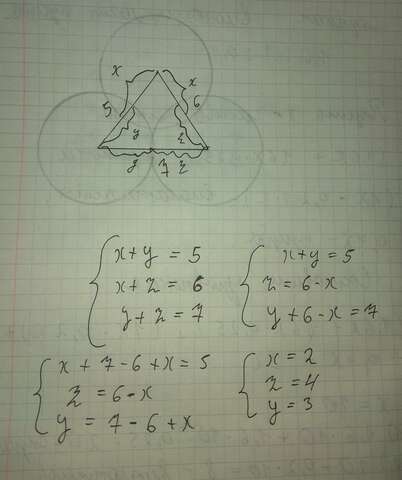 x x
5 6
y z
y 7 z
x + y = 5
x + z = 6
y + z = 7
x + y = 5
z = 6 - x
y + 6 - x = 7
x + 7 - 6 + x = 5
z = 6 - x
y = 7 - 6 + x
x = 2
z = 4
y = 3